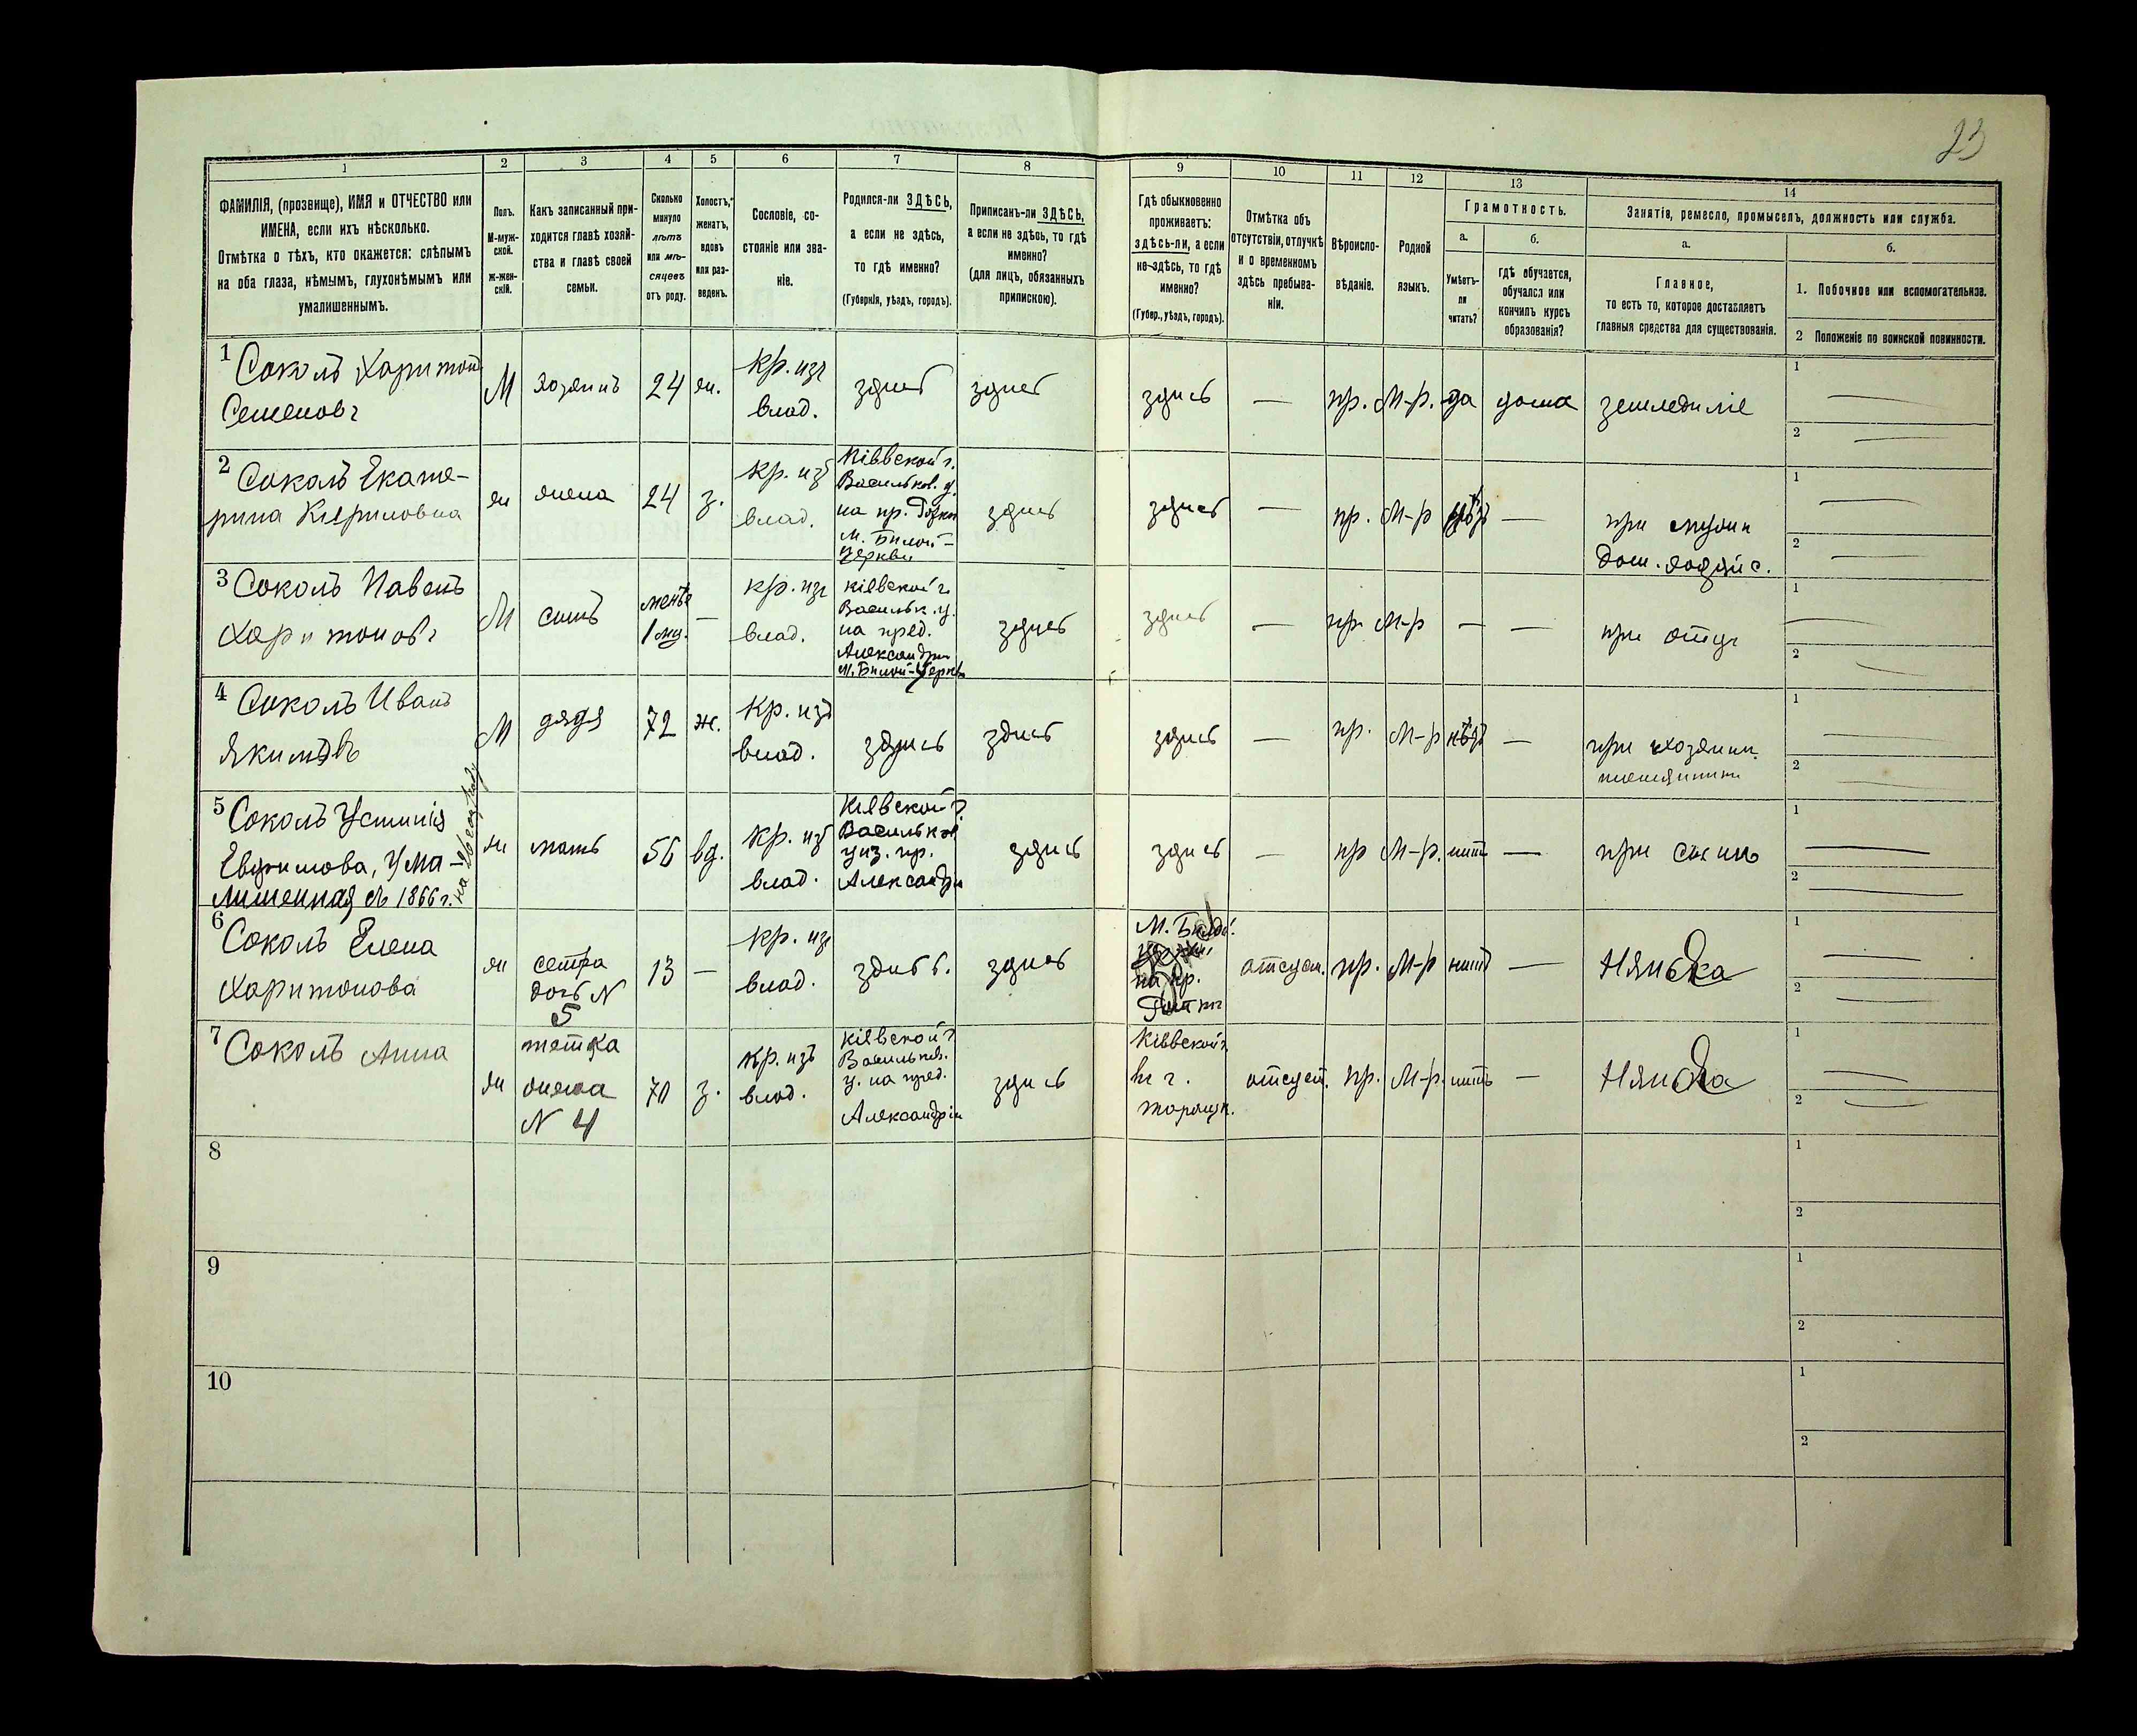 23
1 2 3 4 5 6 7 8 9 10 11 12 13 14
ФАМИЛІЯ, (прозвище), ИМЯ и ОТЧЕСТВО или
ИМЕНА, если ихъ нѣсколько.
Отмѣтка о тѣхъ, кто окажется: слѣпымъ
на оба глаза, нѣмымъ, глухонѣмымъ или
умалишеннымъ.
Полъ.
М-муж-
ской.
ж-жен-
скій.
Какъ записанный при-
ходится главѣ хозяй-
ства и главѣ своей
семьи.
Сколько
минуло
лѣтъ
или мѣ-
сяцевъ
отъ роду.
Холостъ,
женатъ,
вдовъ
или раз-
веденъ.
Сословіе, со-
стояніе или зва-
ніе.
Родился-ли ЗДѢСЬ,
а если не здѣсь,
то гдѣ именно?
(Губернія, уѣздъ, городъ).
Приписанъ-ли ЗДѢСЬ,
а если не здѣсь, то гдѣ
именно?
(для лицъ, обязанныхъ
припискою).
Гдѣ обыкновенно
проживаетъ:
здѣсь-ли, а если
не здѣсь, то гдѣ
именно?
(Губер., уѣздъ, городъ).
Отмѣтка объ
отсутствіи, отлучкѣ
и о временномъ
здѣсь пребыва-
ніи.
Вѣроиспо-
вѣданіе.
Родной
языкъ.
Грамотность.
а.
Умѣетъ-
ли
читать?
б.
гдѣ обучается,
обучался или
кончилъ курсъ
образованія?
Занятія, ремесло, промыселъ, должность или служба.
а.
Главное,
то есть то, которое доставляетъ
главныя средства для существованія.
б.
1. Побочное или вспомогательное.
2 Положеніе по воинской повинности.
1 Соколъ Харитон
Семеновъ
М
хозяинъ
24
жн.
кр. изъ
влад.
здись
здись
здись
—
пр.
М-р.
да
дома
земледиліе
1 —
2 —
2 Соколъ Екате-
рина Кириловна
жн
жена
24
з.
кр. изъ
влад.
Кіевской г.
Васильков. у.
на пр.
М. Билой-
Церкви
здись
здись
—
пр.
М-р
—
при мужи
дом. хозяйс.
1 —
2 —
3 Соколъ Павелъ
Харитоновъ
М
сынъ
менѣе
1 мц.
—
кр. изъ
влад.
Кіевской г.
Васильк. у.
на пред.
Александри
М. Билой-Церкви
здись
здись
—
пр.
М-р
—
—
при отцъ
1 —
2 —
4 Соколъ Иванъ
Якимовъ
М
дядя
72
ж.
кр. изъ
влад.
здись
здись
здись
—
пр.
М-р
нѣтъ
—
при хозяин.
племянники
1 —
2 —
5 Соколъ Устинія
Евфимова, Ума-
лишенная съ 1866 г.
на 26 году
жн
мать
56
вд.
кр. изъ
влад.
Кіевской г
Васильков.
уиз. пр.
Александри
здись
здись
—
пр
М-р.
нитъ
—
при сыни
1 —
2 —
6 Соколъ Елена
Харитонова
жн
сетра
дочь N
5
13
—
кр. изъ
влад.
здись.
здись
М. Билой.
на пр.
отсут.
пр.
М-р
нитъ
—
Нянька
1 —
2 —
7 Соколъ Анна
жн
тетка
жена
N 4
70
з.
кр. изъ
влад.
Кіевской г
Васильков.
у. на пред.
Александріи
здись
Кіевской г.
въ г.
таращ.
отсут.
пр.
М-р.
нитъ
—
Нянька
1 —
2 —
8
1
2
9
1
2
10
1
2